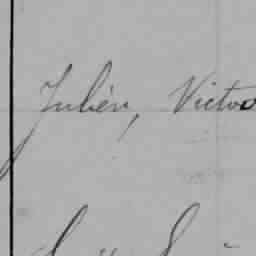 Julien, Victor